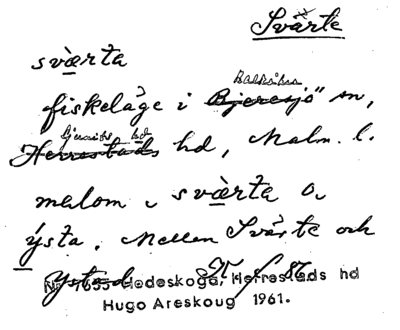 Svärte
svàrta
Balkåkra
fiskeläge i Bjeresjö sn,
Ljunits hd
Herrestads hd, Malm. l.
melom svàrta o
ýsta. Mellan Svärte och
Ystad.
Nr 4655 Hedeskoga, Herrestads hd
Hugo Areskoug 1961.